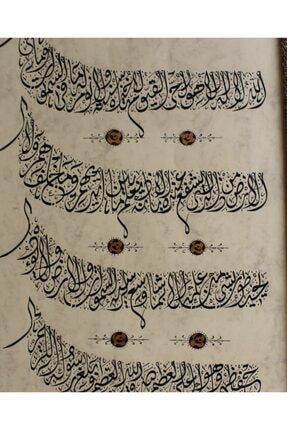 الله لا إله إلا هو الحي القيوم لا تأخذه سنة ولا نوم له ما في السموات وما في
الأرض من ذا الذي يشفع عنده إلا بإذنه يعلم ما بين أيديهم وما خلفهم ولا
يحيطون بشيء من علمه إلا بما شاء وسع كرسيه السموات والأرض ولا يؤده
حفظهما وهو العلي العظيم صدق الله العظيم